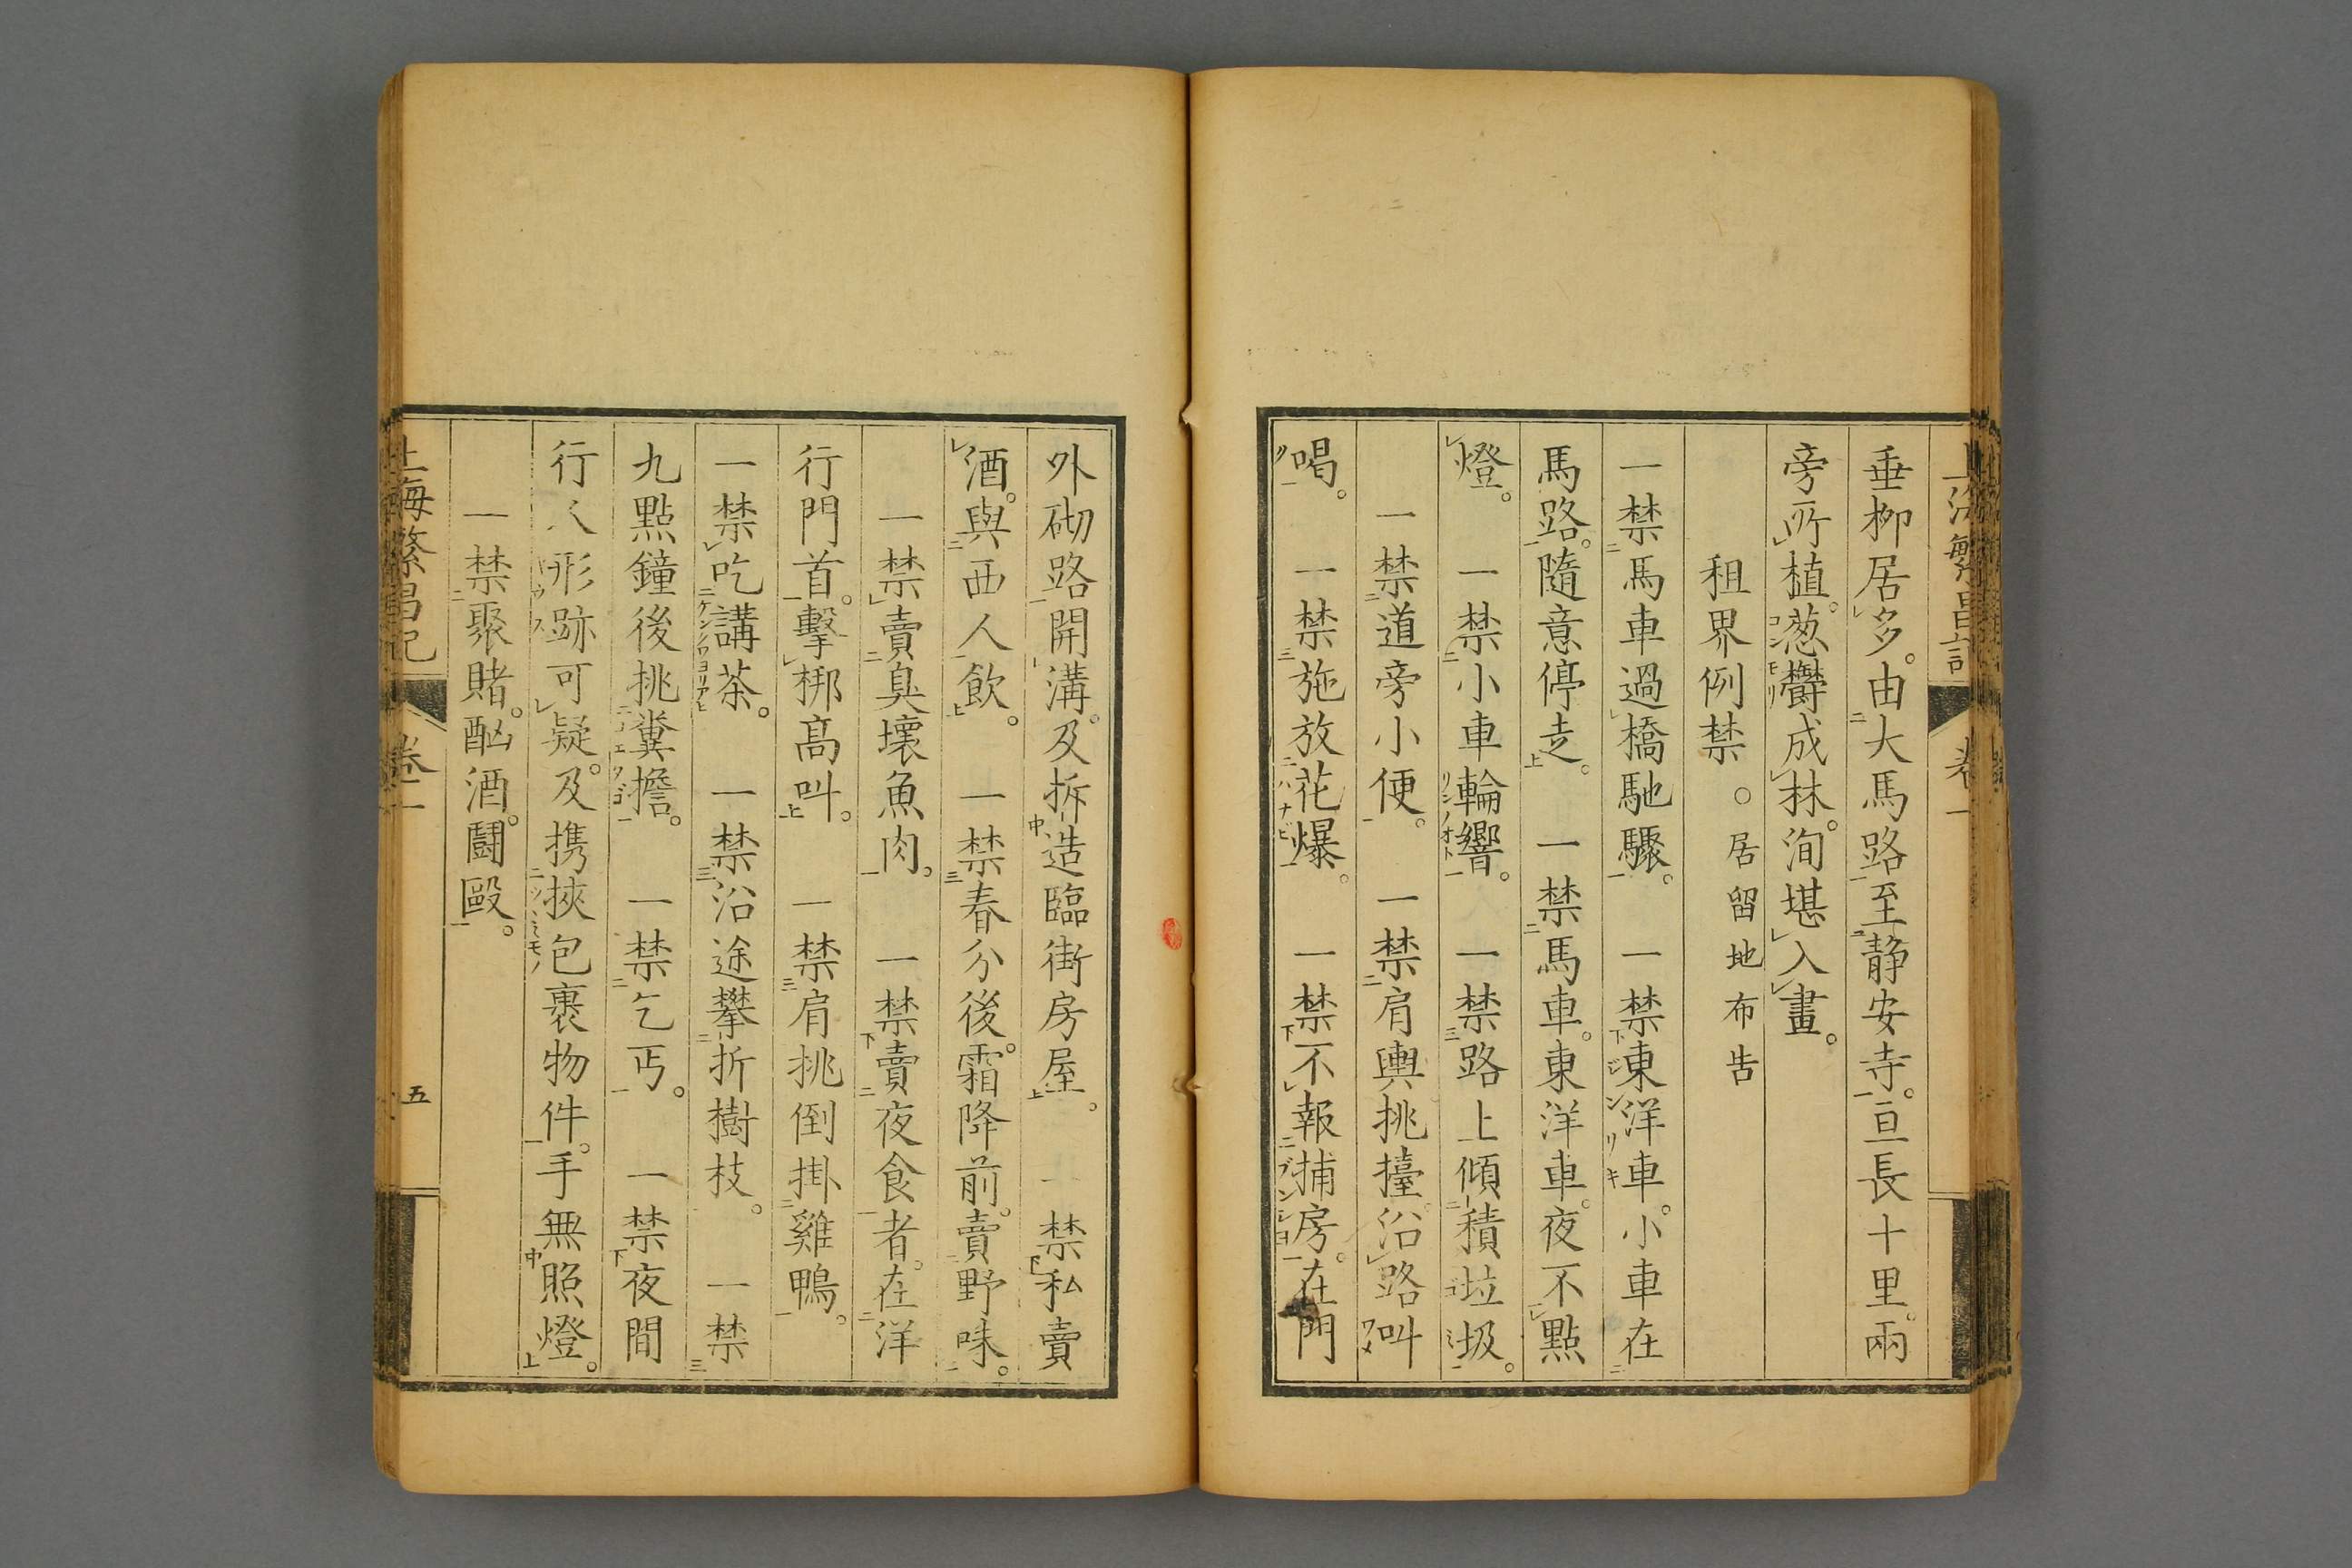 上海繁昌記 卷一
垂柳居多。由大馬路至静安寺。亘長十里。兩
旁所植。葱欝成林。洵堪入畫。
租界例禁 ○居留地布告
一禁馬車過橋馳驟。 一禁東洋車。小車在
馬路。隨意停走。 一禁馬車。東洋車。夜不點
燈。 一禁小車輪響。 一禁路上傾積垃圾。
一禁道旁小便。 一禁肩輿挑擡。沿路叫
喝。 一禁施放花爆。 一禁不報捕房。在門
外砌路開溝。及拆造臨街房屋。 一禁私賣
酒。與西人飲。 一禁春分後。霜降前。賣野味。
一禁賣臭壞魚肉。 一禁賣夜食者。在洋
行門首。擊梆高叫。 一禁肩挑倒掛雞鴨。
一禁吃講茶。 一禁沿途攀折樹枝。 一禁
九點鐘後挑糞擔。 一禁乞丐。 一禁夜間
行人形跡可疑。及携挾包裹物件。手無照燈。
一禁聚賭。酗酒。鬪毆。
上海繁昌記 卷一 五